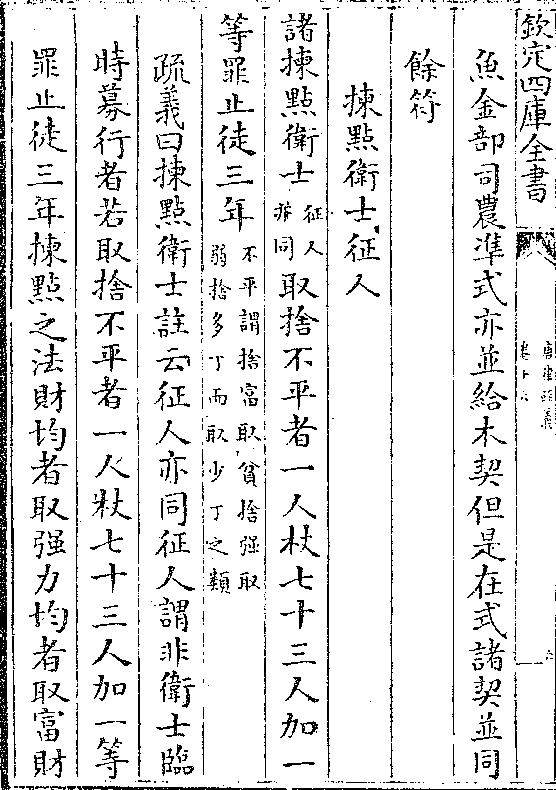 欽定四庫全書
唐律疏義
卷十六
魚金部司農準式亦並給木契但是在式諸契並同
餘符
揀㸃衛士征人
諸揀㸃衛士征人亦同取捨不平者一人杖七十三人加一
等罪止徒三年不平謂捨富取貧捨强取弱捨多丁而取少丁之類
疏義曰揀㸃衛士註云征人亦同征人謂非衛士臨
時募行者若取捨不平者一人杖七十三人加一等
罪止徒三年揀㸃之法財均者取强力均者取富財